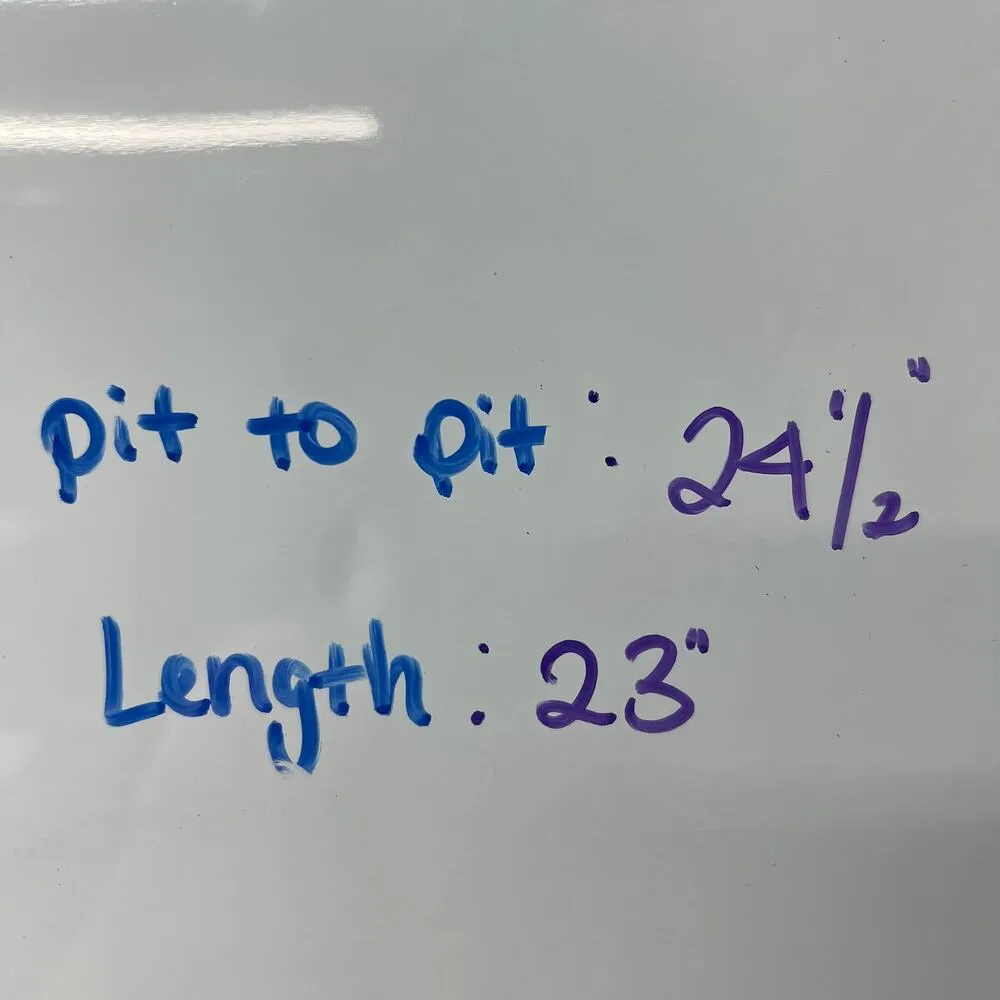 pit to pit : 24 1/2"
Length : 23"